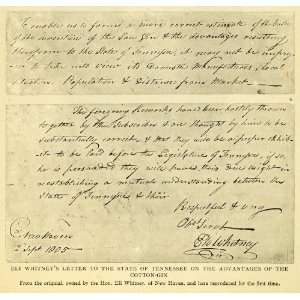 To enable us to form a more correct estimate of the value
of the invention of the Saw Gin & the advantages resulting
therefrom to the State of Tennessee, it may not be improper
to take into view its Domestic Manufactures, Local
situation, Population & Distance from Market.
The foregoing Remarks have been hastily thrown
together by the Subscriber & are thought by him to be
substantially correct & that they will be a proper exhibit
to be laid before the Legislature of Tennessee, if so,
he is persuaded they will have their due weight in
establishing a mutual understanding between the
State of Tennessee & their
Respectful & very
Obt Servt
Eli Whitney
New Haven
2 Sept 1805
ELI WHITNEY'S LETTER TO THE STATE OF TENNESSEE ON THE ADVANTAGES OF THE
COTTON-GIN
From the original, owned by the Hon. Eli Whitney, of New Haven, and here reproduced for the first time.